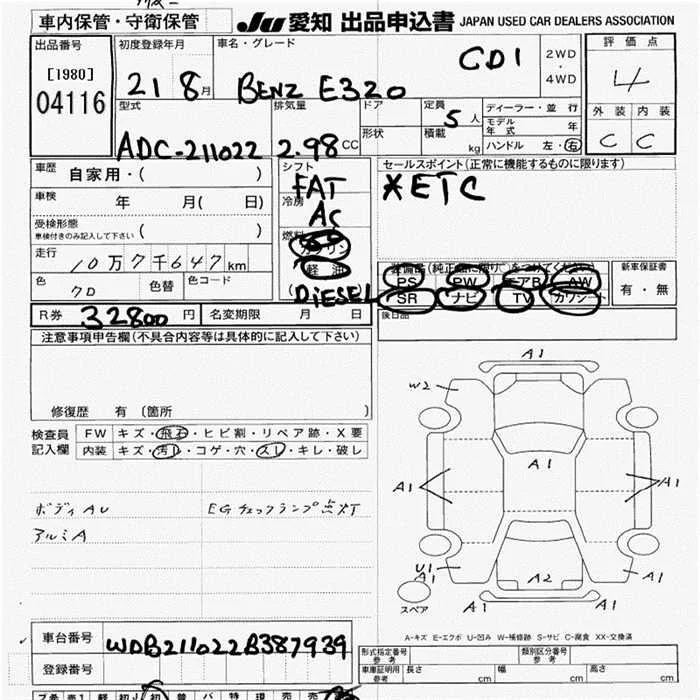 車内保管・守衛保管
JU 愛知 出品申込書 JAPAN USED CAR DEALERS ASSOCIATION
出品番号 初度登録年月 車名・グレード 評価点
[1980] 04116
21 8月 BENZ E320 CDI 2WD・4WD 4
型式 排気量 ドア 定員 5人 ディーラー・並行 外装 内装
形状 積載 kg モデル年式 年
ADC-211022 2.98CC ハンドル 左・右 C C
車歴 自家用・( ) シフト FAT セールスポイント(正常に機能するものに限ります)
*ETC
車検 年 月( 日) 冷房 AC
受検形態 車検付きのみ記入して下さい ( ) 燃料 ガソリン
走行 10万7千647km 軽油
DiESEL
装備品(純正品に限り○をつけてください) 新車保証書
PS PW エアB AW 有・無
SR ナビ TV カワシート
色 色替 色コード
R券 32800円 名変期限 月 日 後日品
注意事項申告欄(不具合内容等は具体的に記入して下さい)
修復歴 有 〔箇所 〕
検査員記入欄 FW キズ・飛石・ヒビ割・リペア跡・X要
内装 キズ・汚レ・コゲ・穴・スレ・キレ・破レ
ボディAU EGチェックランプ点灯
アルミA
A1
W2
A1
A1 A1
U1 A1 A2 A1
スペア A1 A1
A-キズ E-エクボ U-凹み W-補修跡 S-サビ C-腐食 XX-交換済
車台番号 WDB211022B387939
登録番号
形式指定番号 参考 類別区分番号 参考
車庫証明用 参考 長さ cm 幅 cm 高さ cm